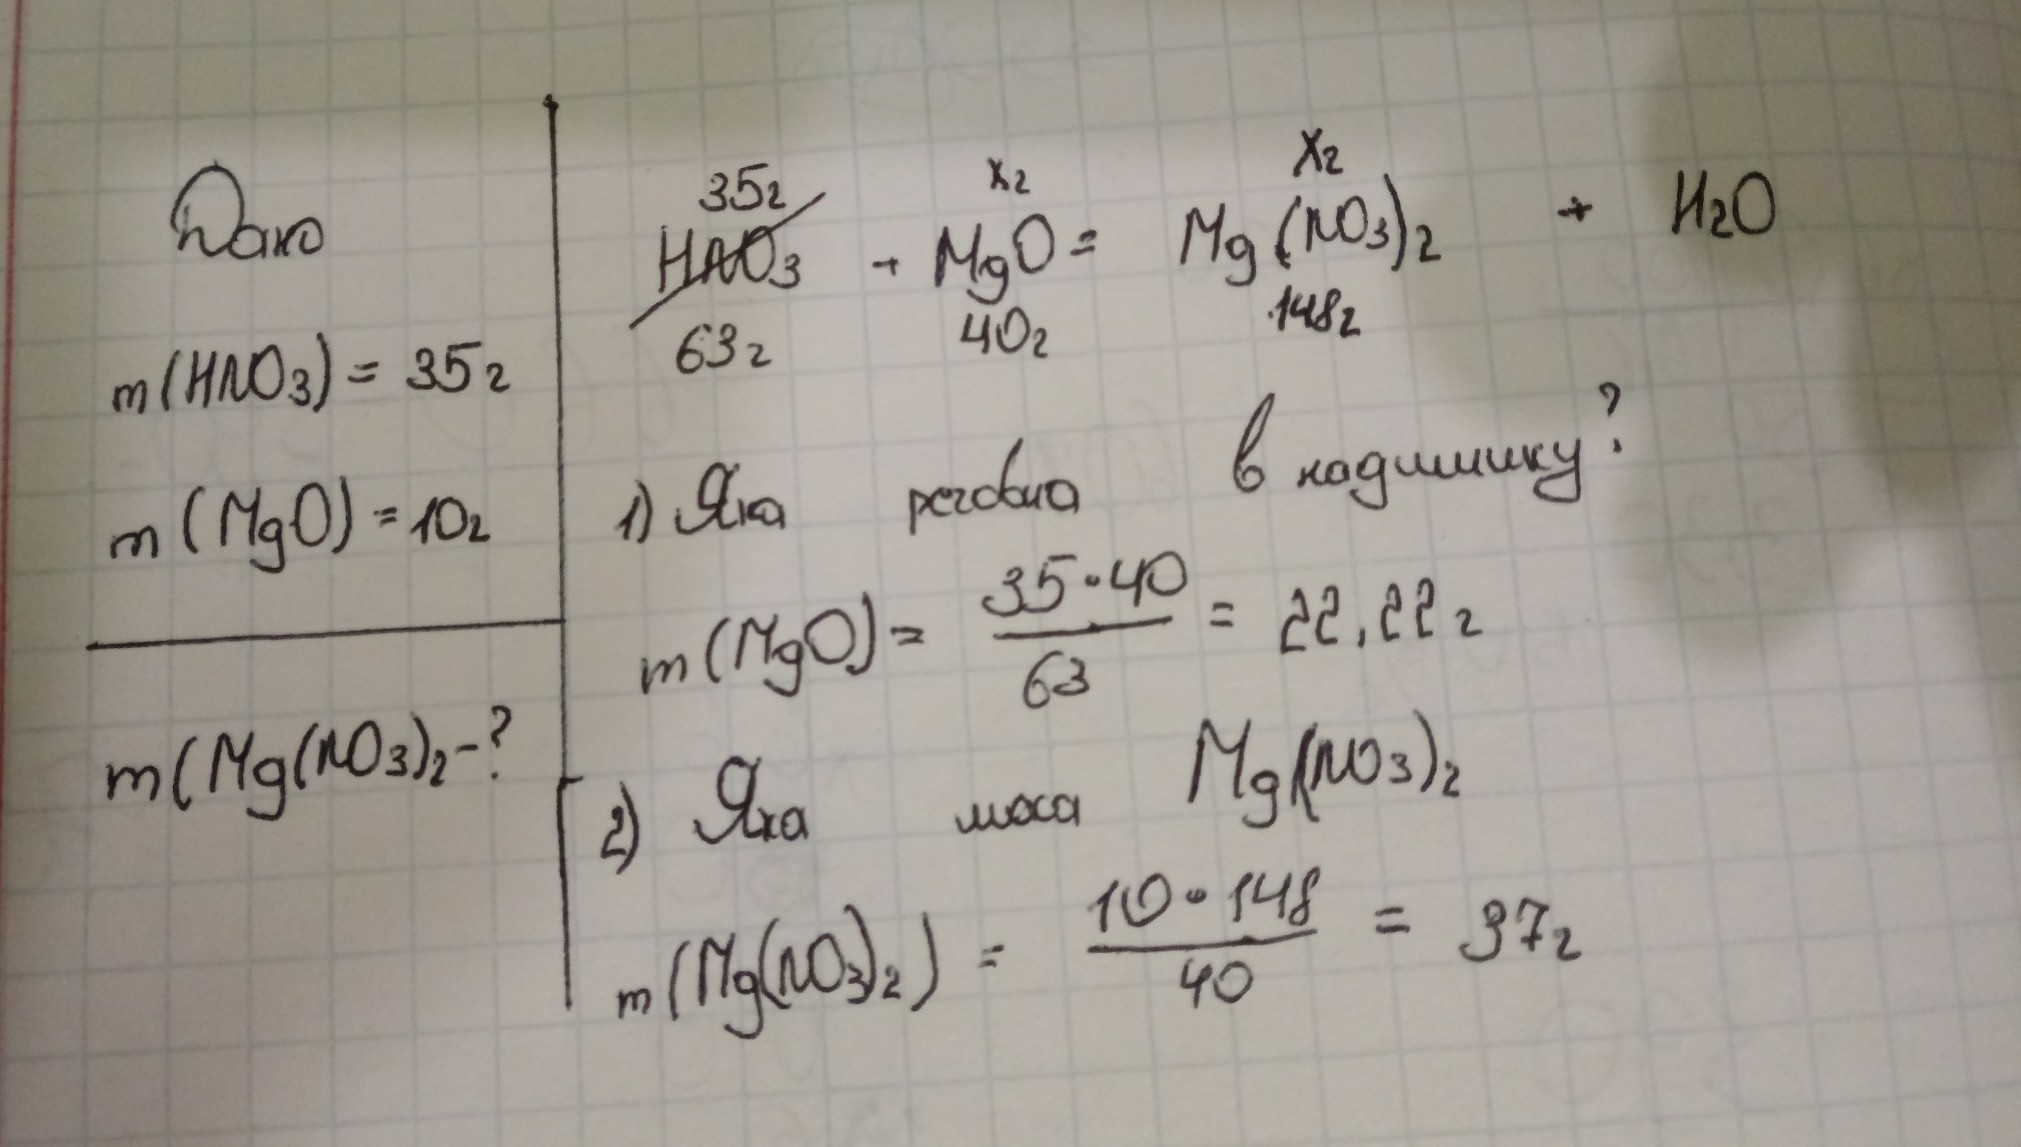 Дано
m(HNO3) = 35г
m(MgO) = 10г
m(Mg(NO3)2-?
35г xг Xг
HNO3 + MgO = Mg(NO3)2 + H2O
63г 40г 148г
1) Яка речовина в надлишку?
m(MgO) = 35·40 / 63 = 22,22г
2) Яка маса Mg(NO3)2
m(Mg(NO3)2) = 10·148 / 40 = 37г